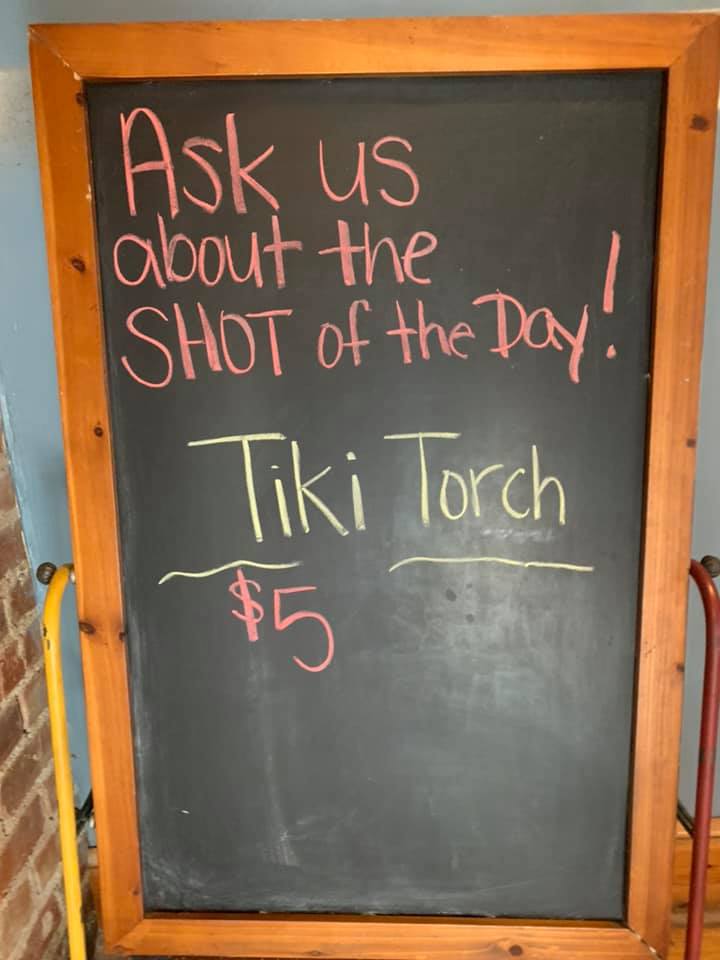 Ask us
about the
SHOT of the Day!
Tiki Torch
$5